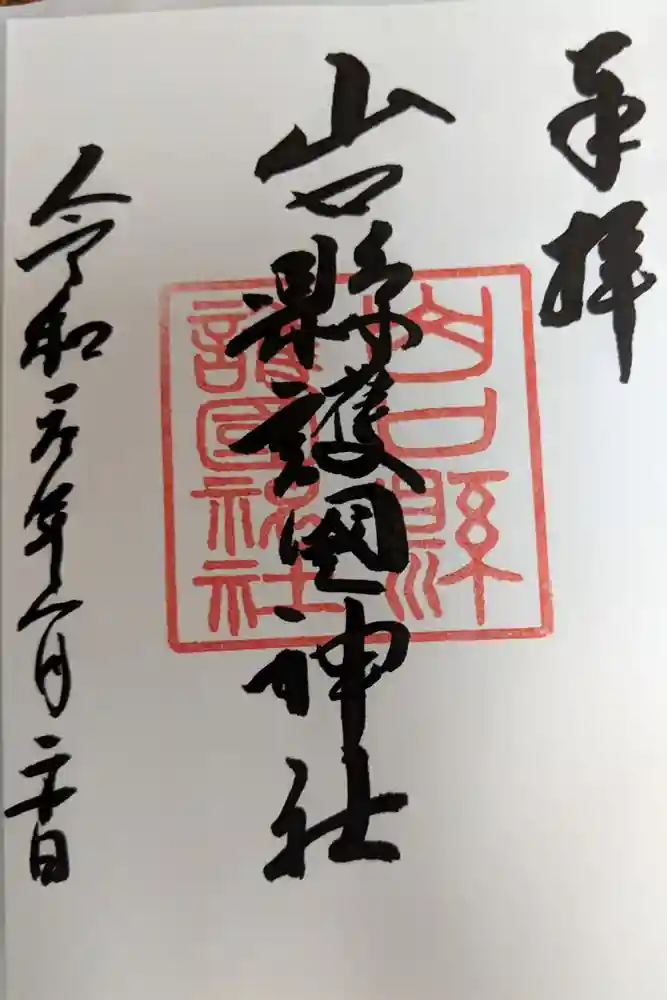 奉拝
山口縣護國神社
山口縣
護國神社
令和元年八月二十日